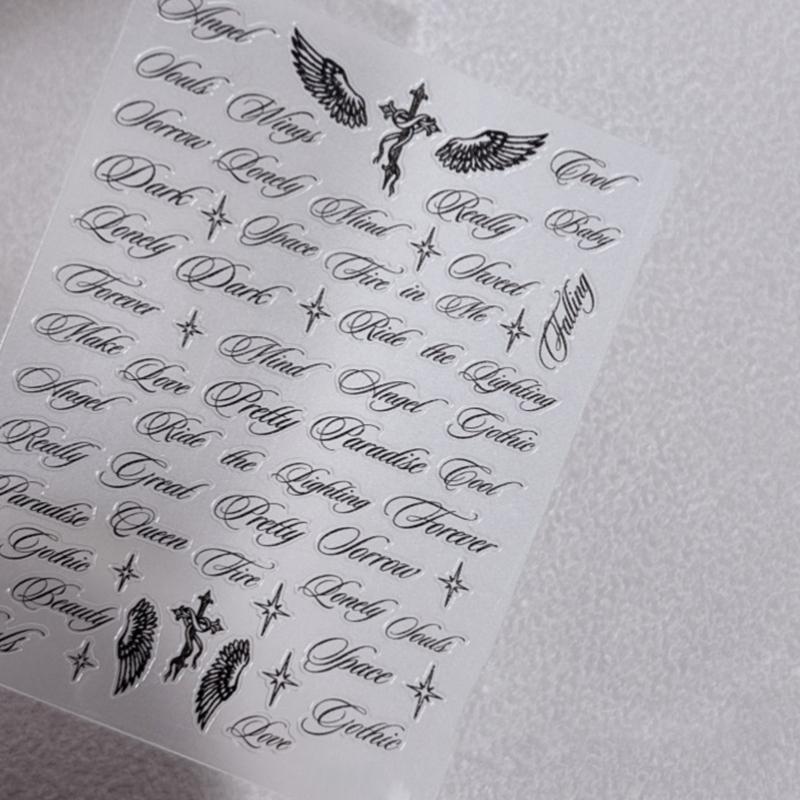 Angel
Souls Wings Cool
Sorrow Lonely Mind Really Baby
Dark Space Fire in Me Sweet
Falling
Lonely Dark Ride the Lighting
Forever Mind Angel Gothic
Make Love Pretty Paradise Cool
Angel Ride the Lighting Forever
Really Great Pretty Sorrow
Paradise Queen Fire Lonely Souls
Gothic Space
Beauty Gothic
Love